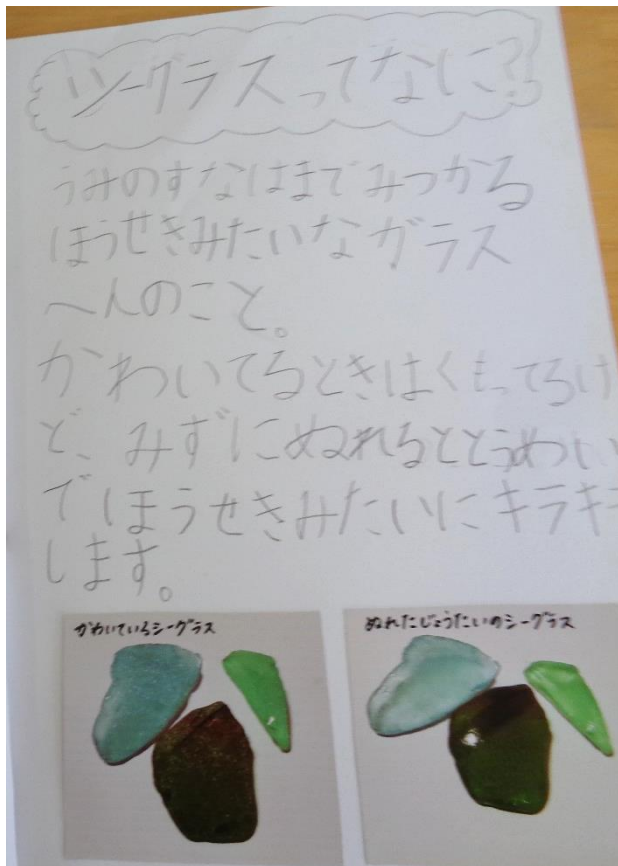 シーグラスってなに?
うみのすなはまでみつかる
ほうせきみたいなガラス
へんのこと。
かわいてるときはくもってるけ
ど、みずにぬれるととうめい
でほうせきみたいにキラキラ
します。
かわいているシーグラス
ぬれたじょうたいのシーグラス